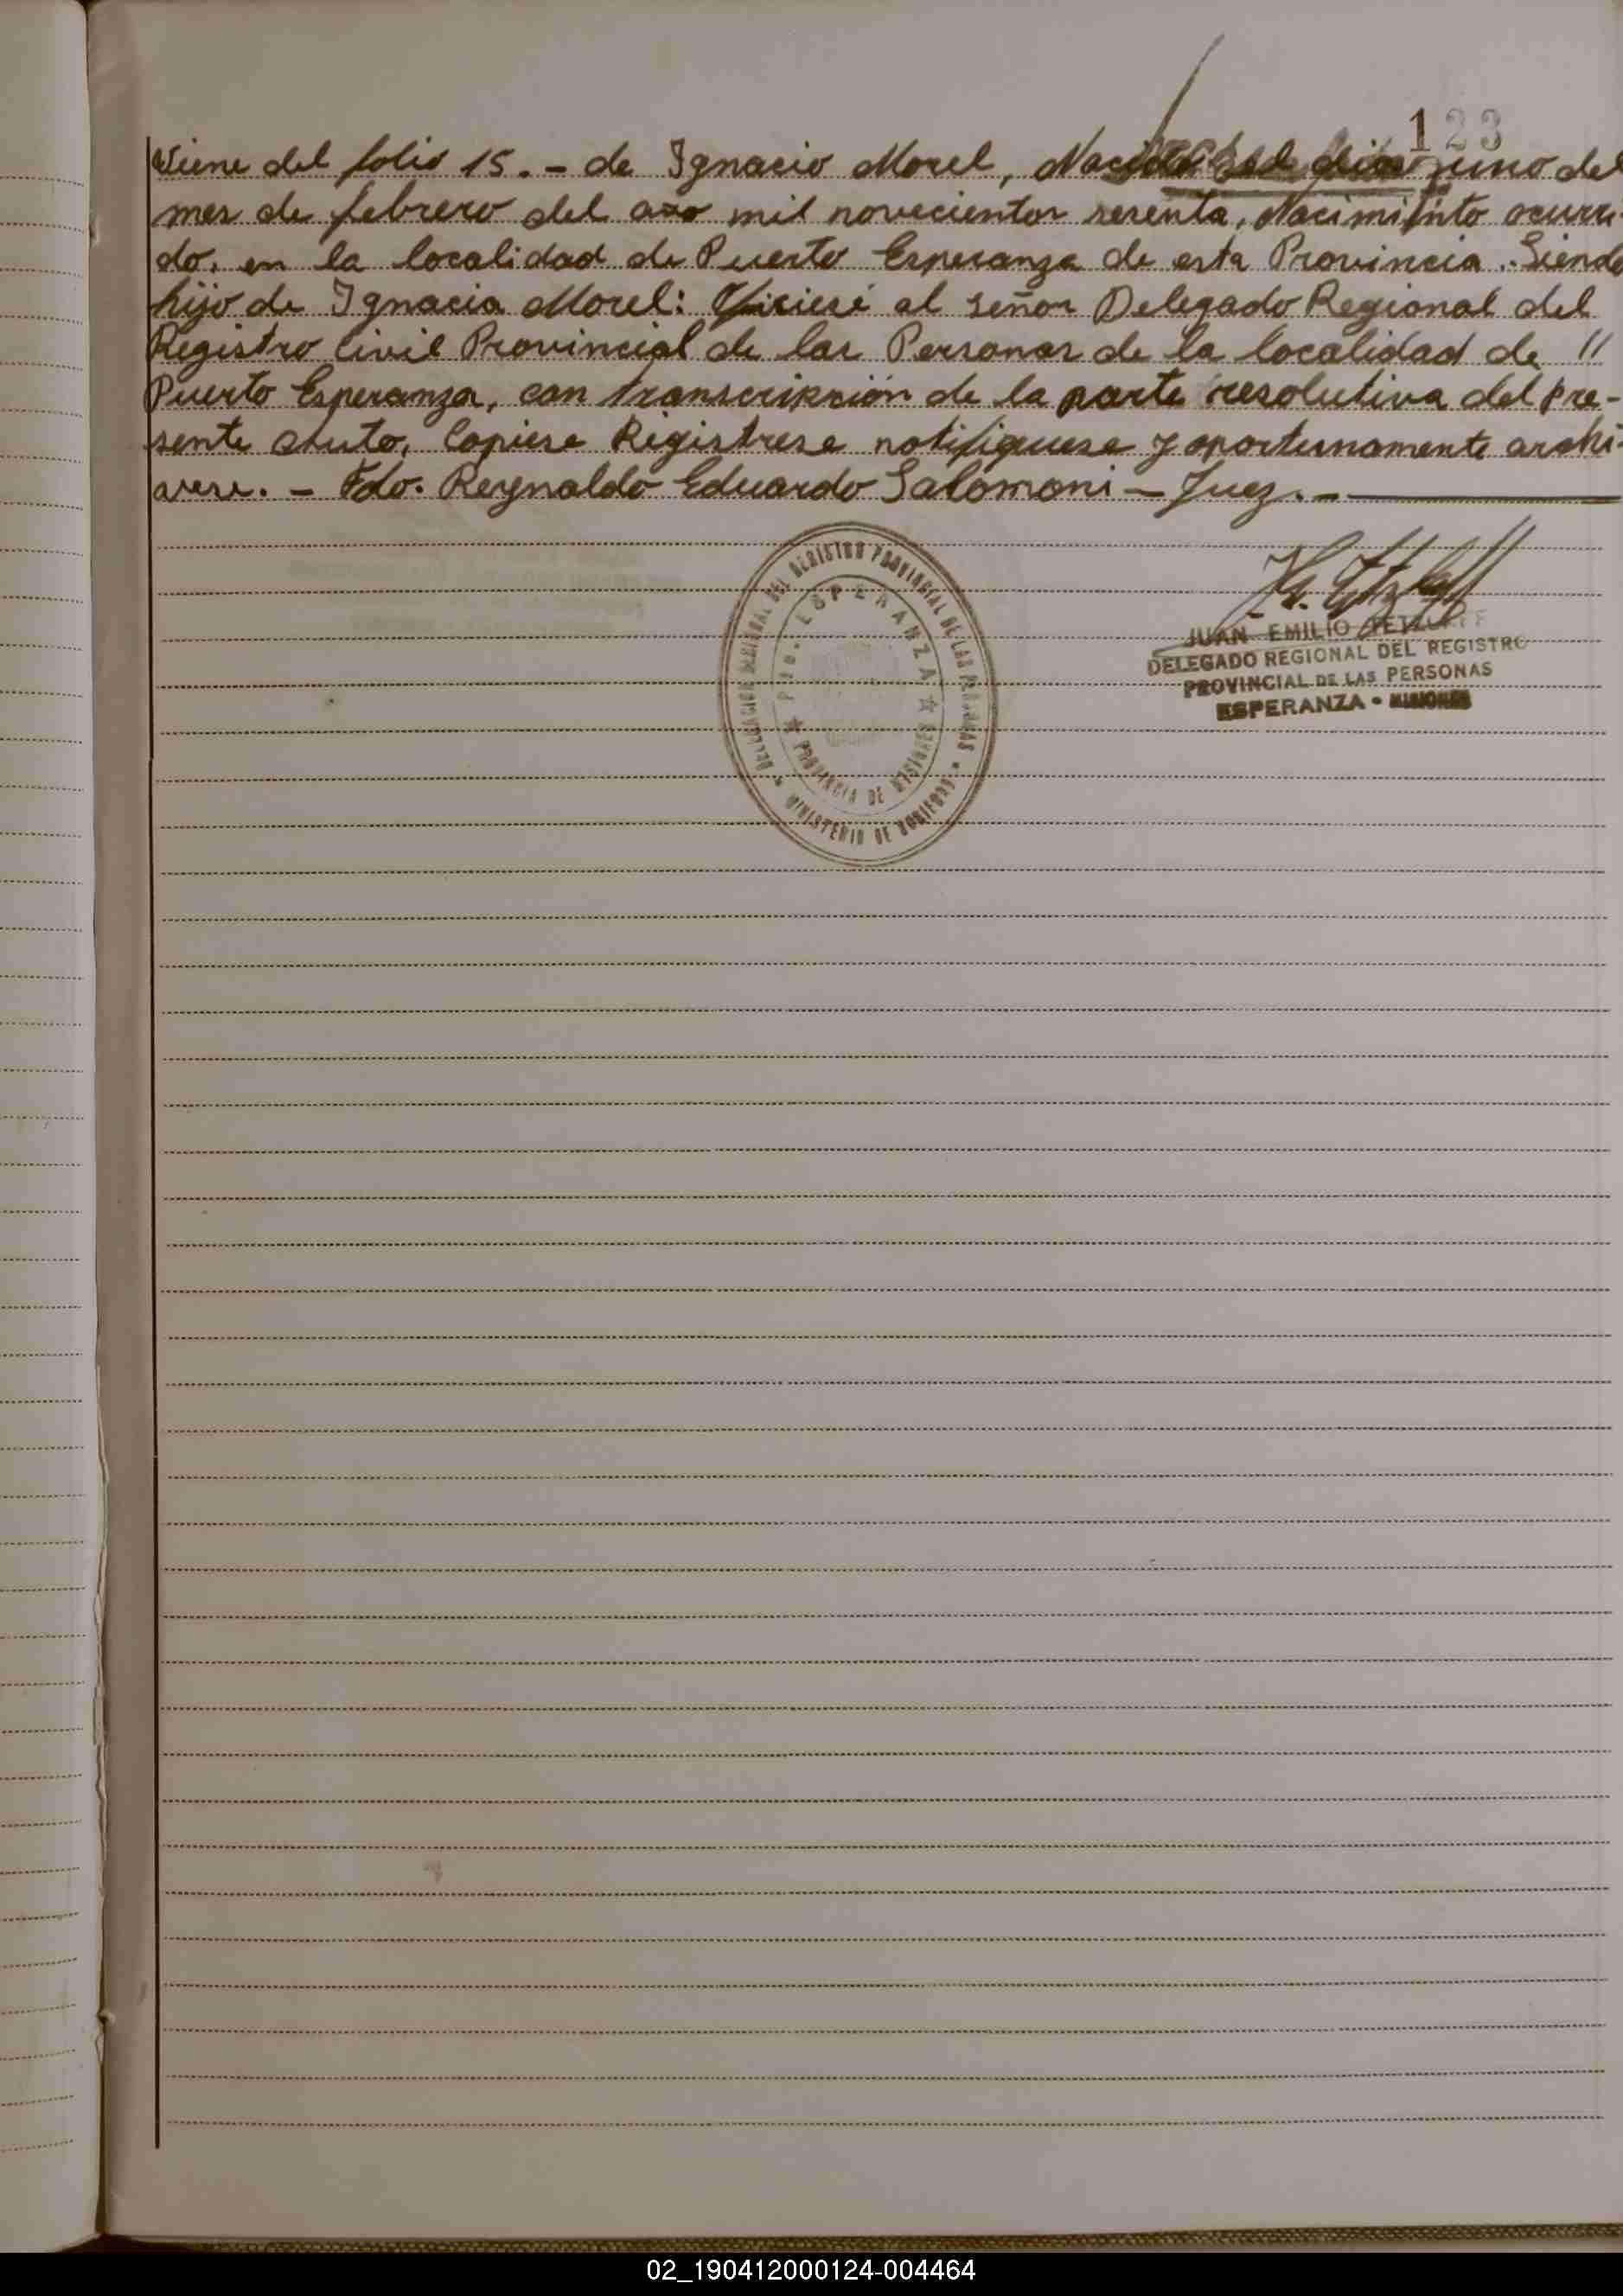 123
Viene del folio 15. - de Ignacio Morel, Nacido el dia uno del
mes de febrero del año mil novecientos sesenta, Nacimiento ocurri
do, en la localidad de Puerto Esperanza de esta Provincia. Siendo
hijo de Ignacia Morel: Oficiesé al señor Delegado Regional del
Registro Civil Provincial de las Personas de la localidad de //
Puerto Esperanza, con transcripción de la parte resolutiva del pre-
sente Auto, Copiese Registrese notifiquese y oportunamente archi-
vese. - Fdo. Reynaldo Eduardo Salomoni - Juez. -
DELEGACION REGIONAL DEL REGISTRO PROVINCIAL DE LAS PERSONAS
PTO. ESPERANZA
PROVINCIA DE MISIONES
MINISTERIO DE GOBIERNO
JUAN EMILIO
DELEGADO REGIONAL DEL REGISTRO
PROVINCIAL DE LAS PERSONAS
ESPERANZA - MISIONES
02_190412000124-004464